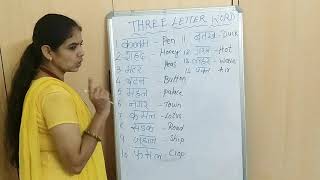 THREE LETTER WORD
कलम - Pen
2 शहद - Honey
3 मटर - Peas
4 बटन - Button
5 महल - palace
6 नगर - Town
7 कमल - Lotus
8 सड़क - Road
9 जहाज - Ship
10 फसल - Crop
11 बतख - Duck
12 गरम - Hot
13 लहर - Wave
14 पवन - Air